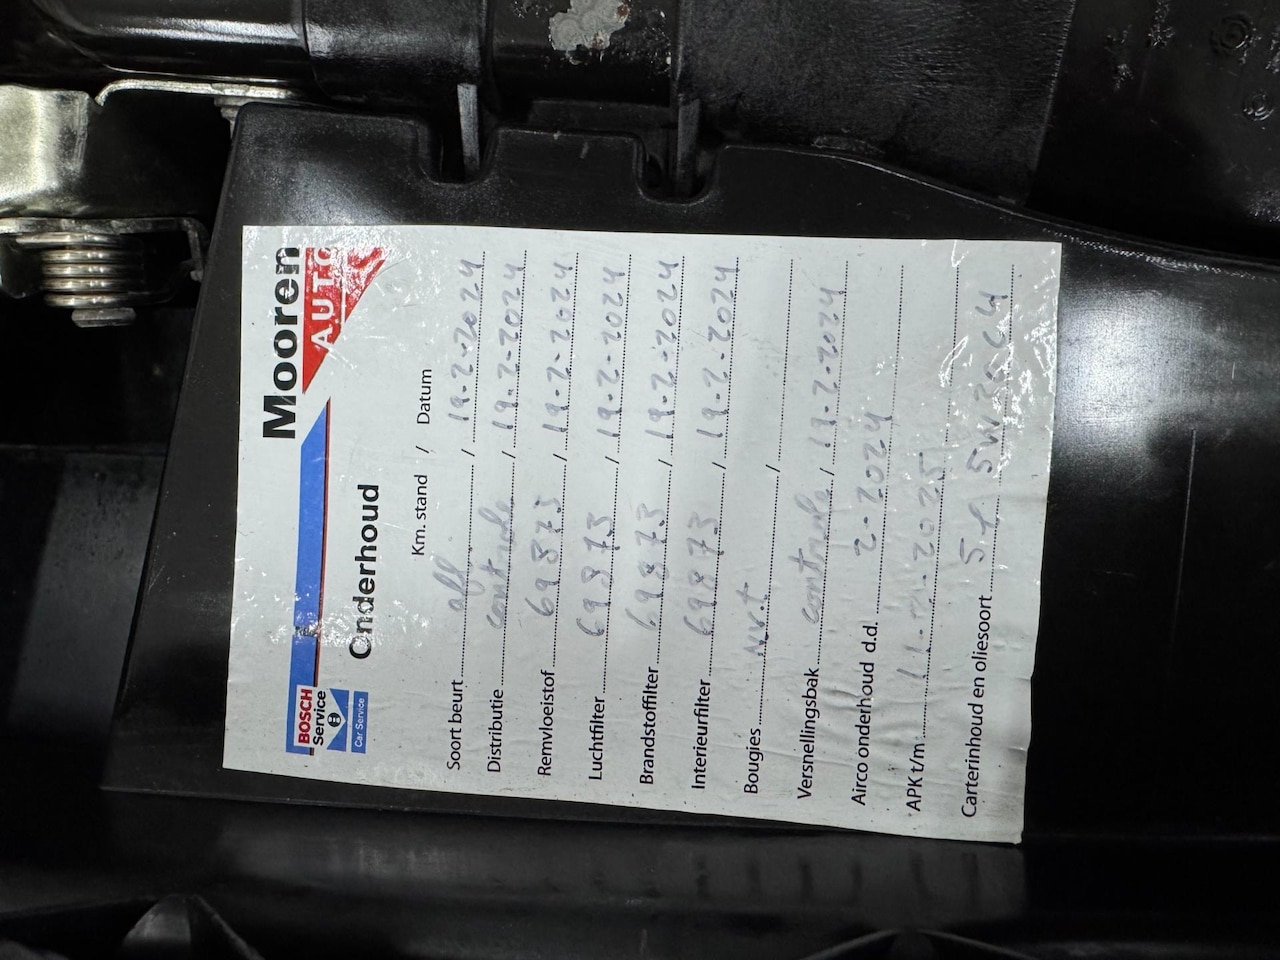 Mooren
AUTO
BOSCH
Service
Car Service
Onderhoud
Km. stand / Datum
Soort beurt / 19-2-2024
Distributie controle / 19-2-2024
Remvloeistof 69873 / 19-2-2024
Luchtfilter 69873 / 19-2-2024
Brandstoffilter 69873 / 19-2-2024
Interieurfilter 69873 / 19-2-2024
Bougies n.v.t /
Versnellingsbak controle / 19-2-2024
Airco onderhoud d.d. 2-2024
APK t/m 2025
Carterinhoud en oliesoort 5 l 5W30